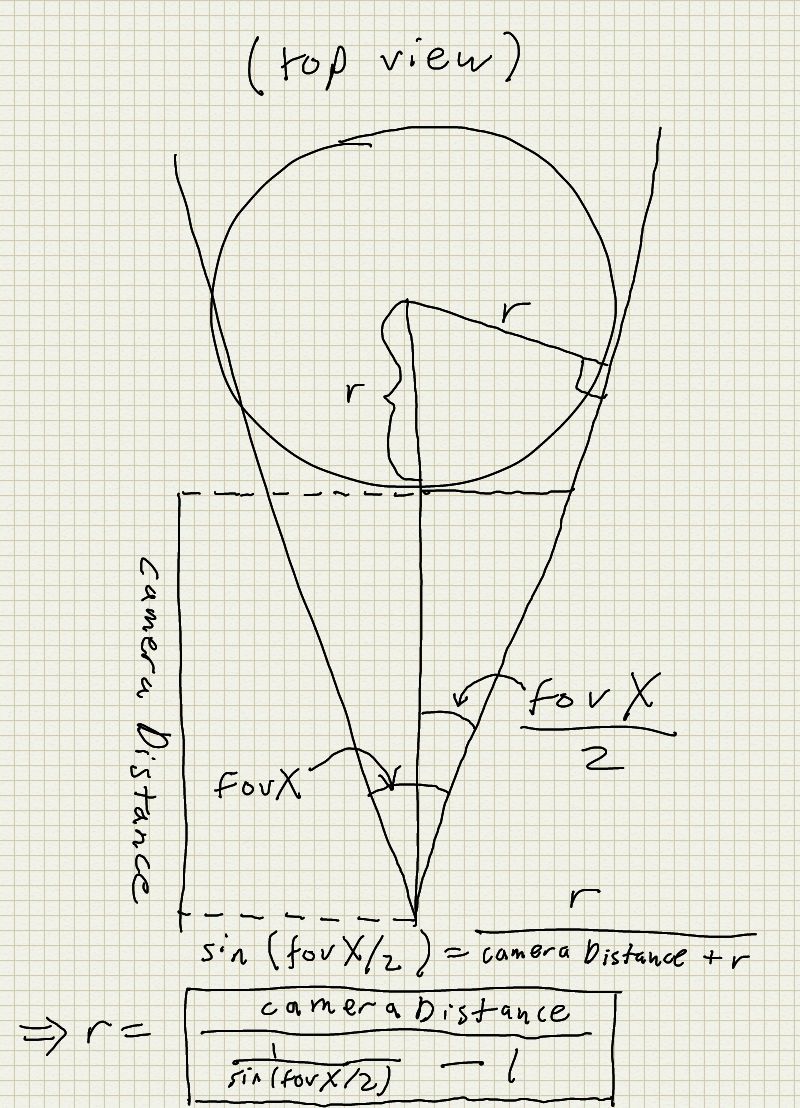 (top view)
r
r
camera Distance
fovX
2
fovX
r
sin (fovX/2) = camera Distance + r
camera Distance
⇒ r =
1
sin(fovX/2) − 1